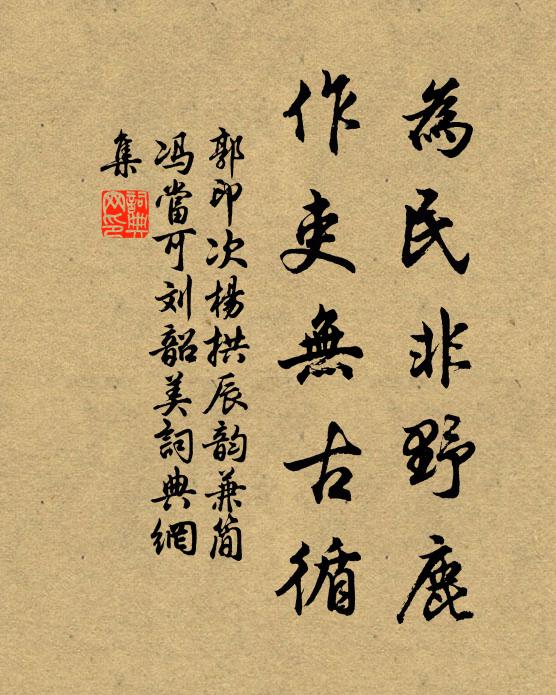 為民非野鹿
作吏無古循
郭印次楊拱辰韵兼简
冯當可刘韶美詞典網
集
詞典
网印